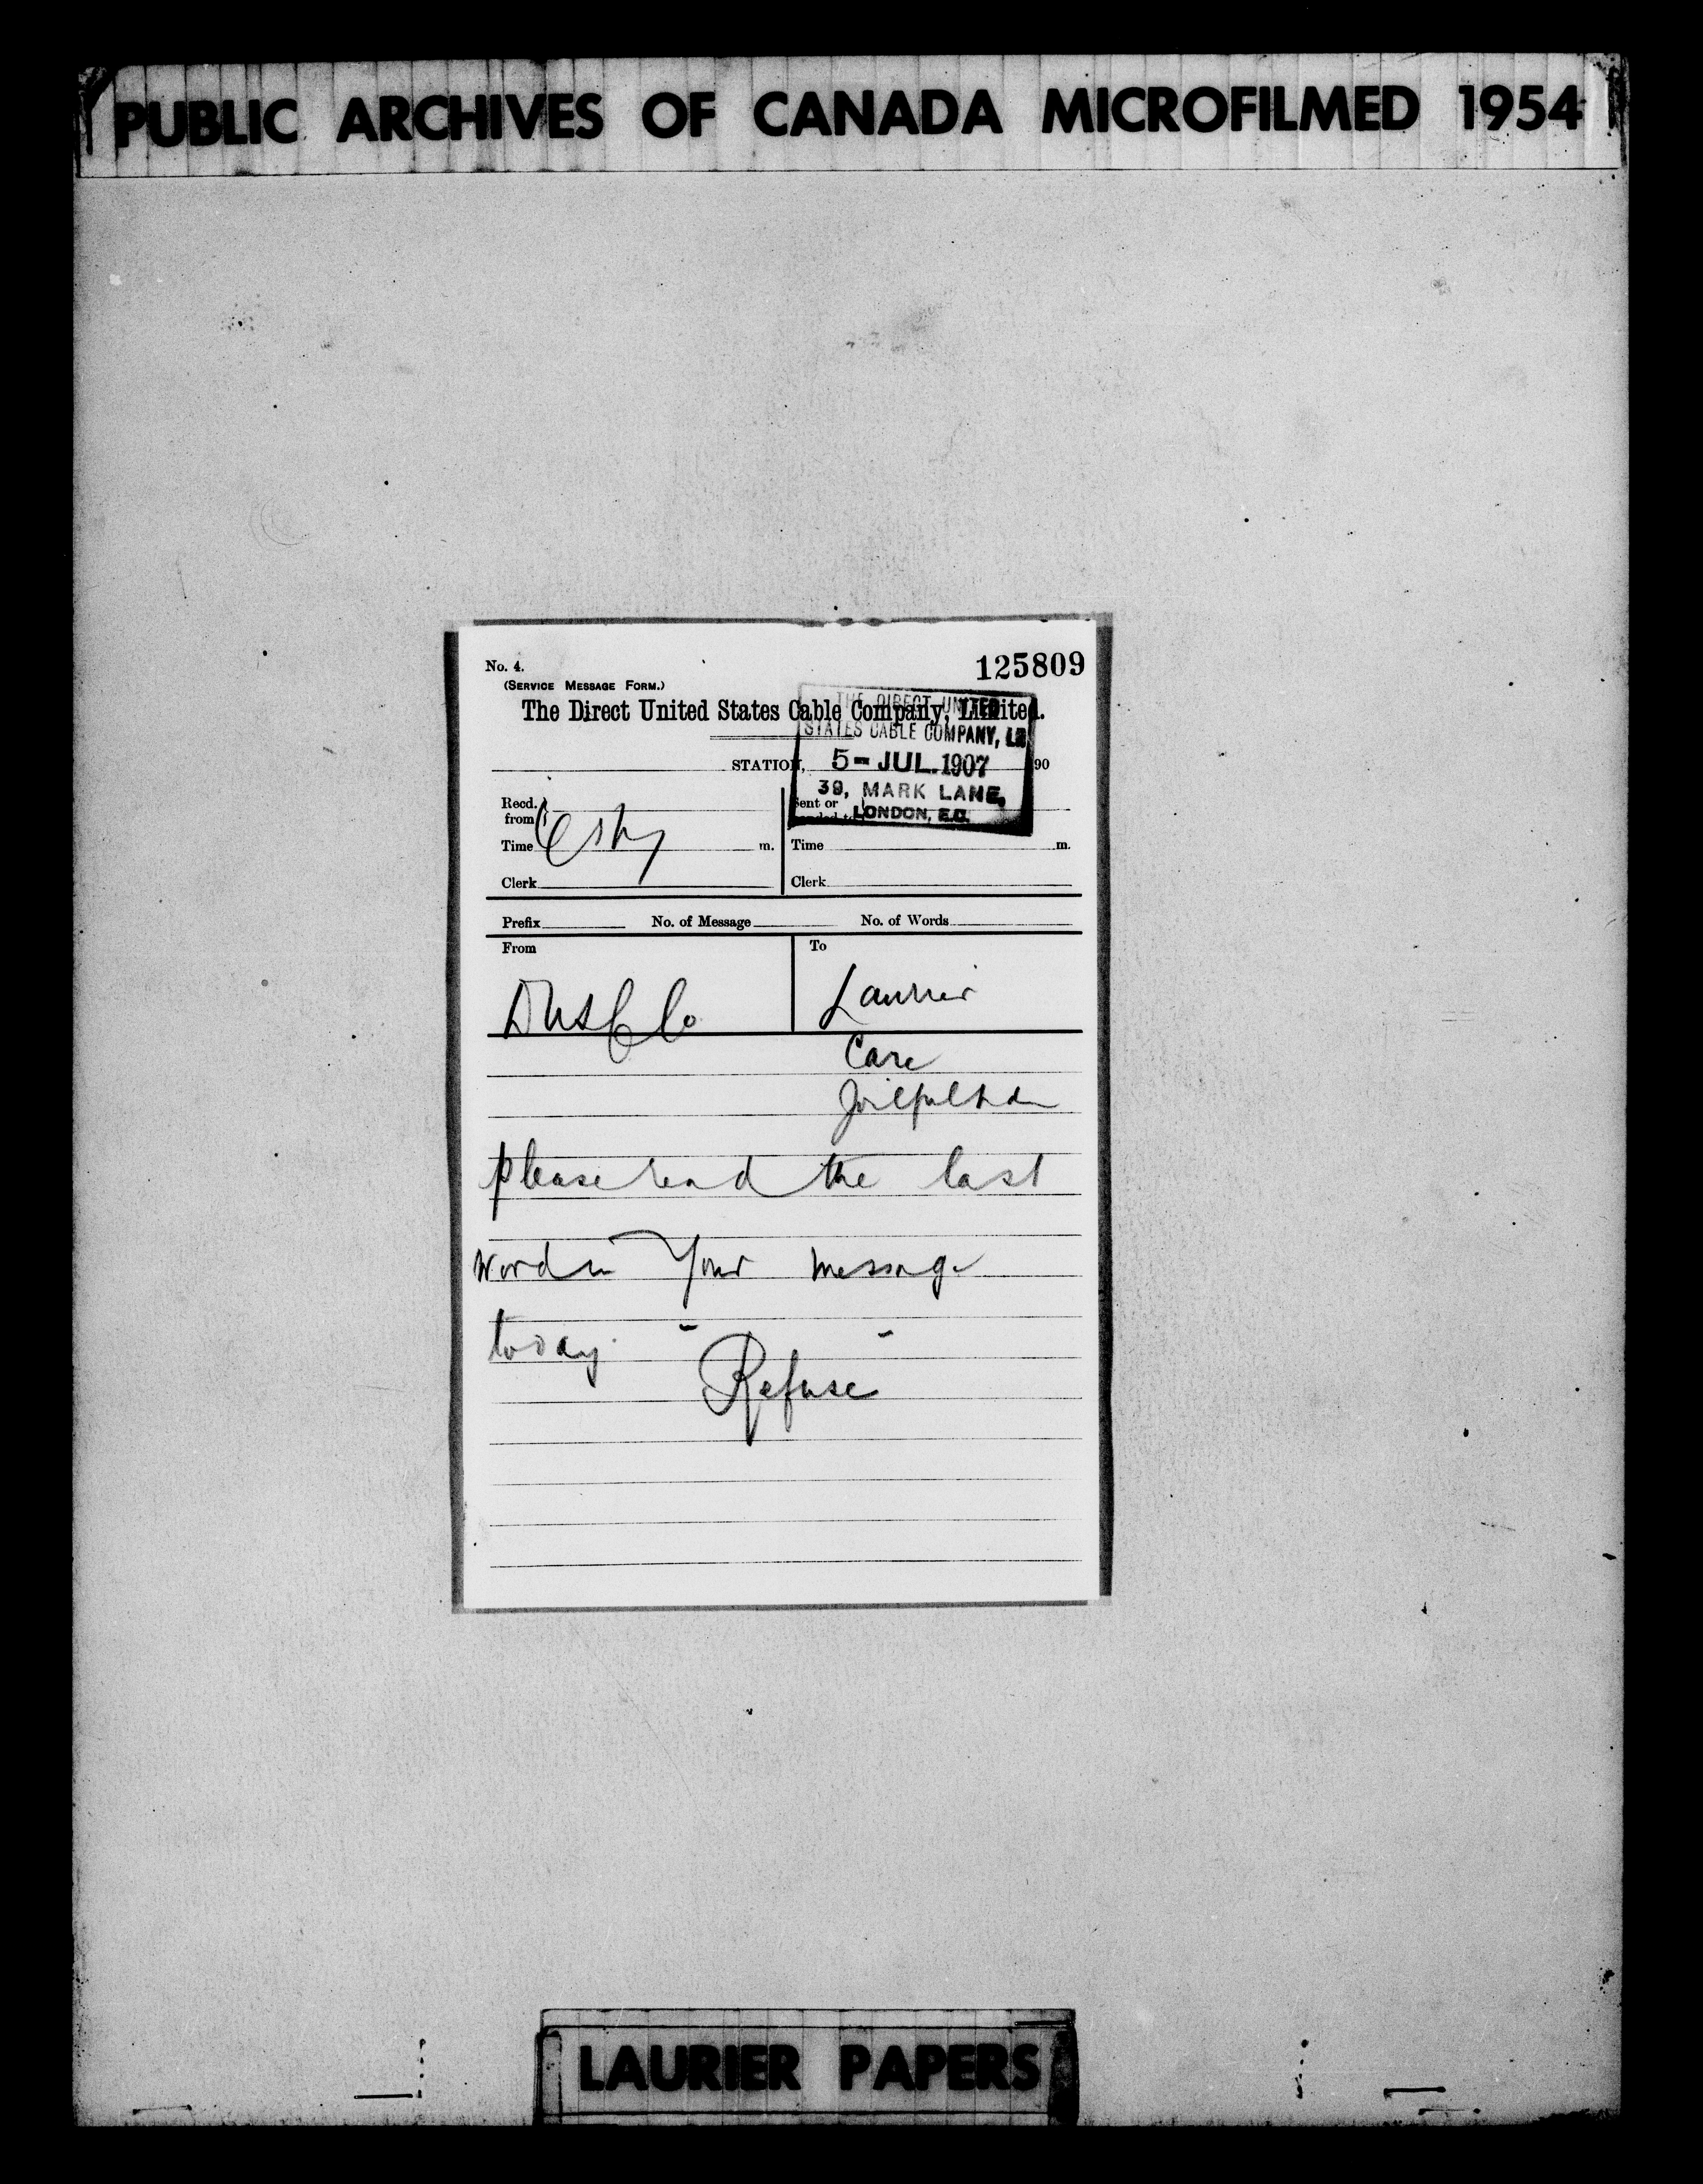 PUBLIC ARCHIVES OF CANADA MICROFILMED 1954
No. 4.
125809
(SERVICE MESSAGE FORM.)
The Direct United States Cable Company, Limited.
THE DIRECT UNITED
STATES CABLE COMPANY, LD
STATION, 190
5 - JUL. 1907
39, MARK LANE,
LONDON, E.C.
Recd. from
Sent or
Time m. Time m.
Clerk Clerk
Prefix No. of Message No. of Words
From To
DUSC Co Laurier
Care
please read the last
word in your message
today "Refuse"
LAURIER PAPERS